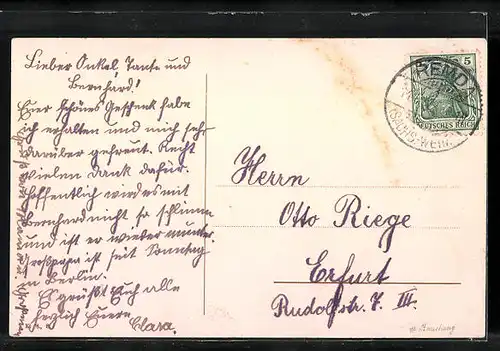 Lieber Onkel, Tante und
Bernhard!
Euer schönes Geschenk habe
ich erhalten und mich sehr
darüber gefreut. Recht
vielen Dank dafür.
Hoffentlich wird es mit
Bernhard nicht so schlimm
und ist er wieder munter.
Großpapa ist seit Sonntag
in Berlin.
Es grüßt Euch alle
herzlich Eure
Clara.
REMDA
(SACHS.-WEIM.)
5
DEUTSCHES REICH
Herrn
Otto Riege
Erfurt
Rudolfstr. 7. III.